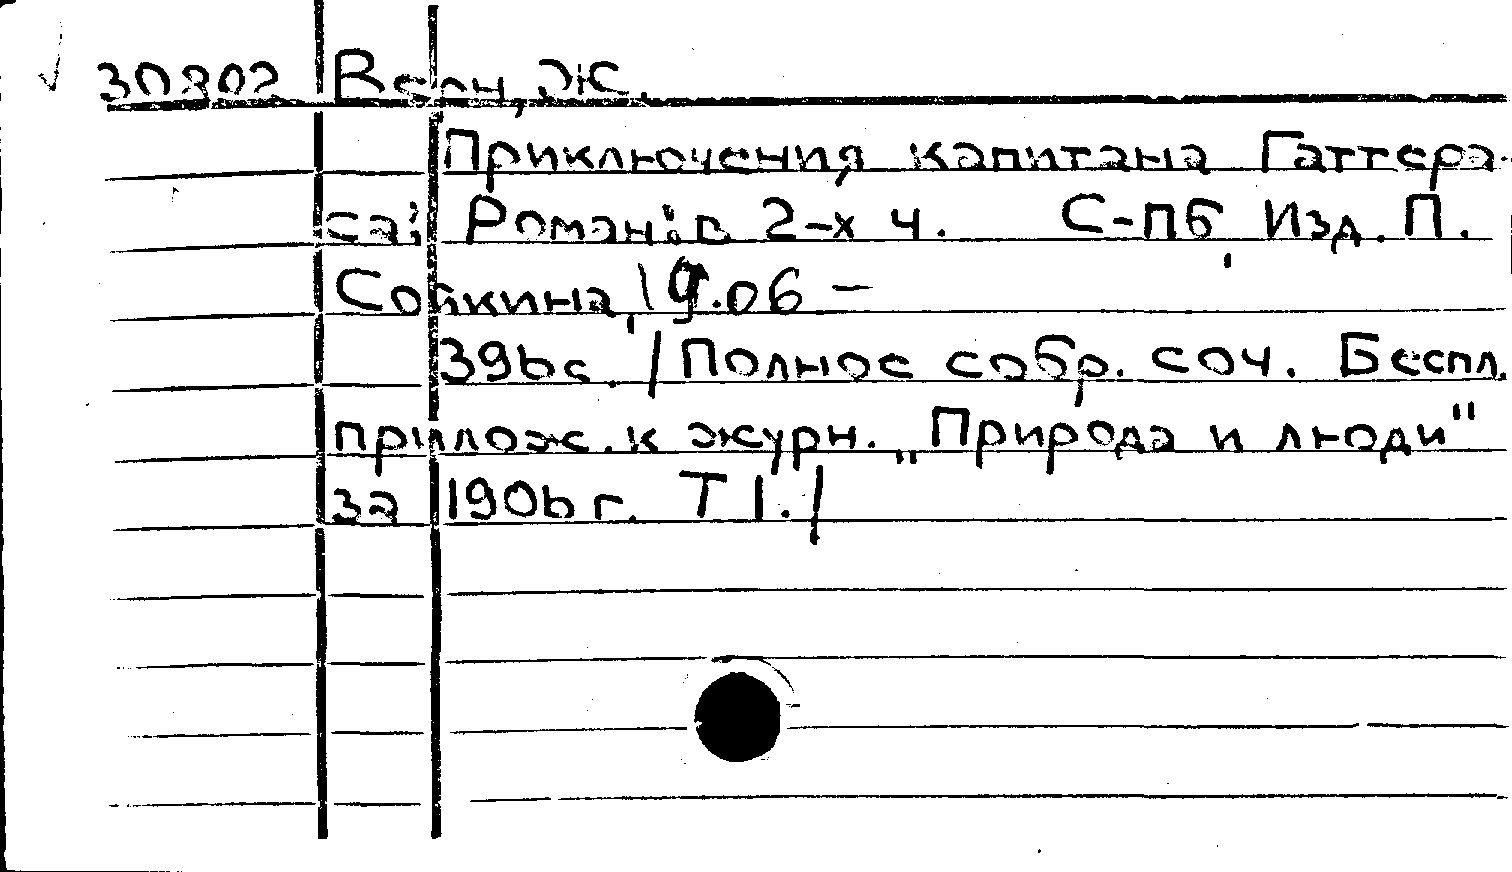 30802 Верн, Ж.
Приключения капитана Гаттера-
са: Роман: в 2-х ч. С-пб, Изд. П.
Сойкина, 19.06 —
396с. /Полное собр. соч. Беспл.
прилож. к журн. „Природа и люди"
за 1906 г. Т 1./